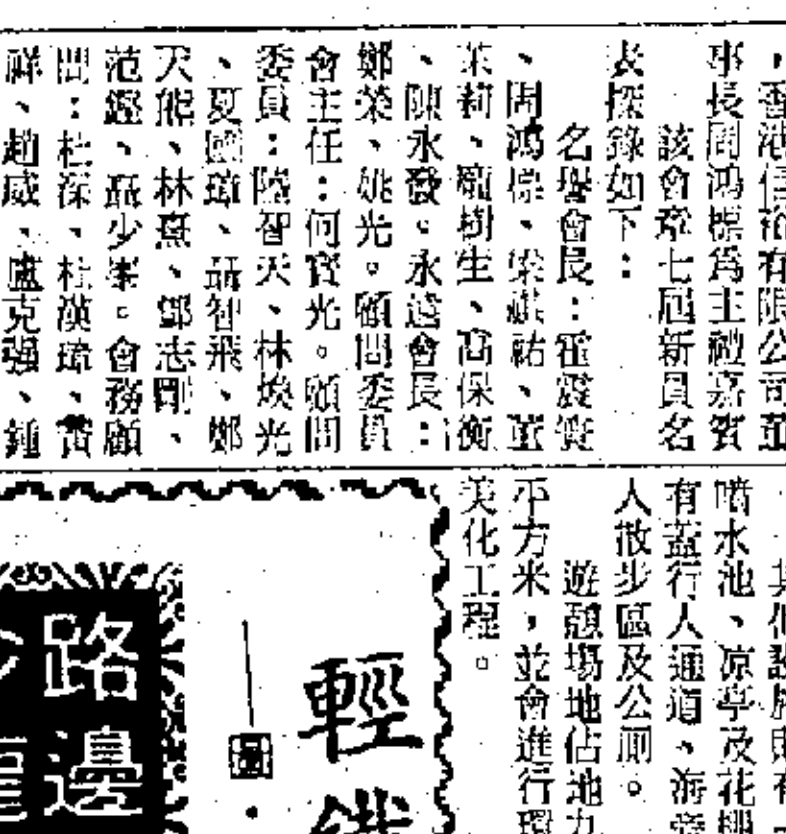 ，香港信裕有限公司董
事長周鴻標為主禮嘉賓
該會第七屆新員名
表探錄如下：
名譽會長：霍震寰
、周鴻標、梁祺祐、董
茉莉、龐樹生、高保衡
、陳永發。永遠會長：
鄭榮、姚光。顧問委員
會主任：何寶光。顧問
委員：陸智天、林煥光
、夏國璋、聶智飛、鄭
天熊、林熹、鄧志剛、
范　、聶少　。會務顧
問：杜深、杜漢琦、黃
祥、趙威、盧克强、鍾
其他設施則有
噴水池、凉亭及花棚
有蓋行人通道、海旁
人散步區及公厠。
遊憩場地佔地九
平方米，並會進行環
美化工程。
輕鐵
圖
路邊